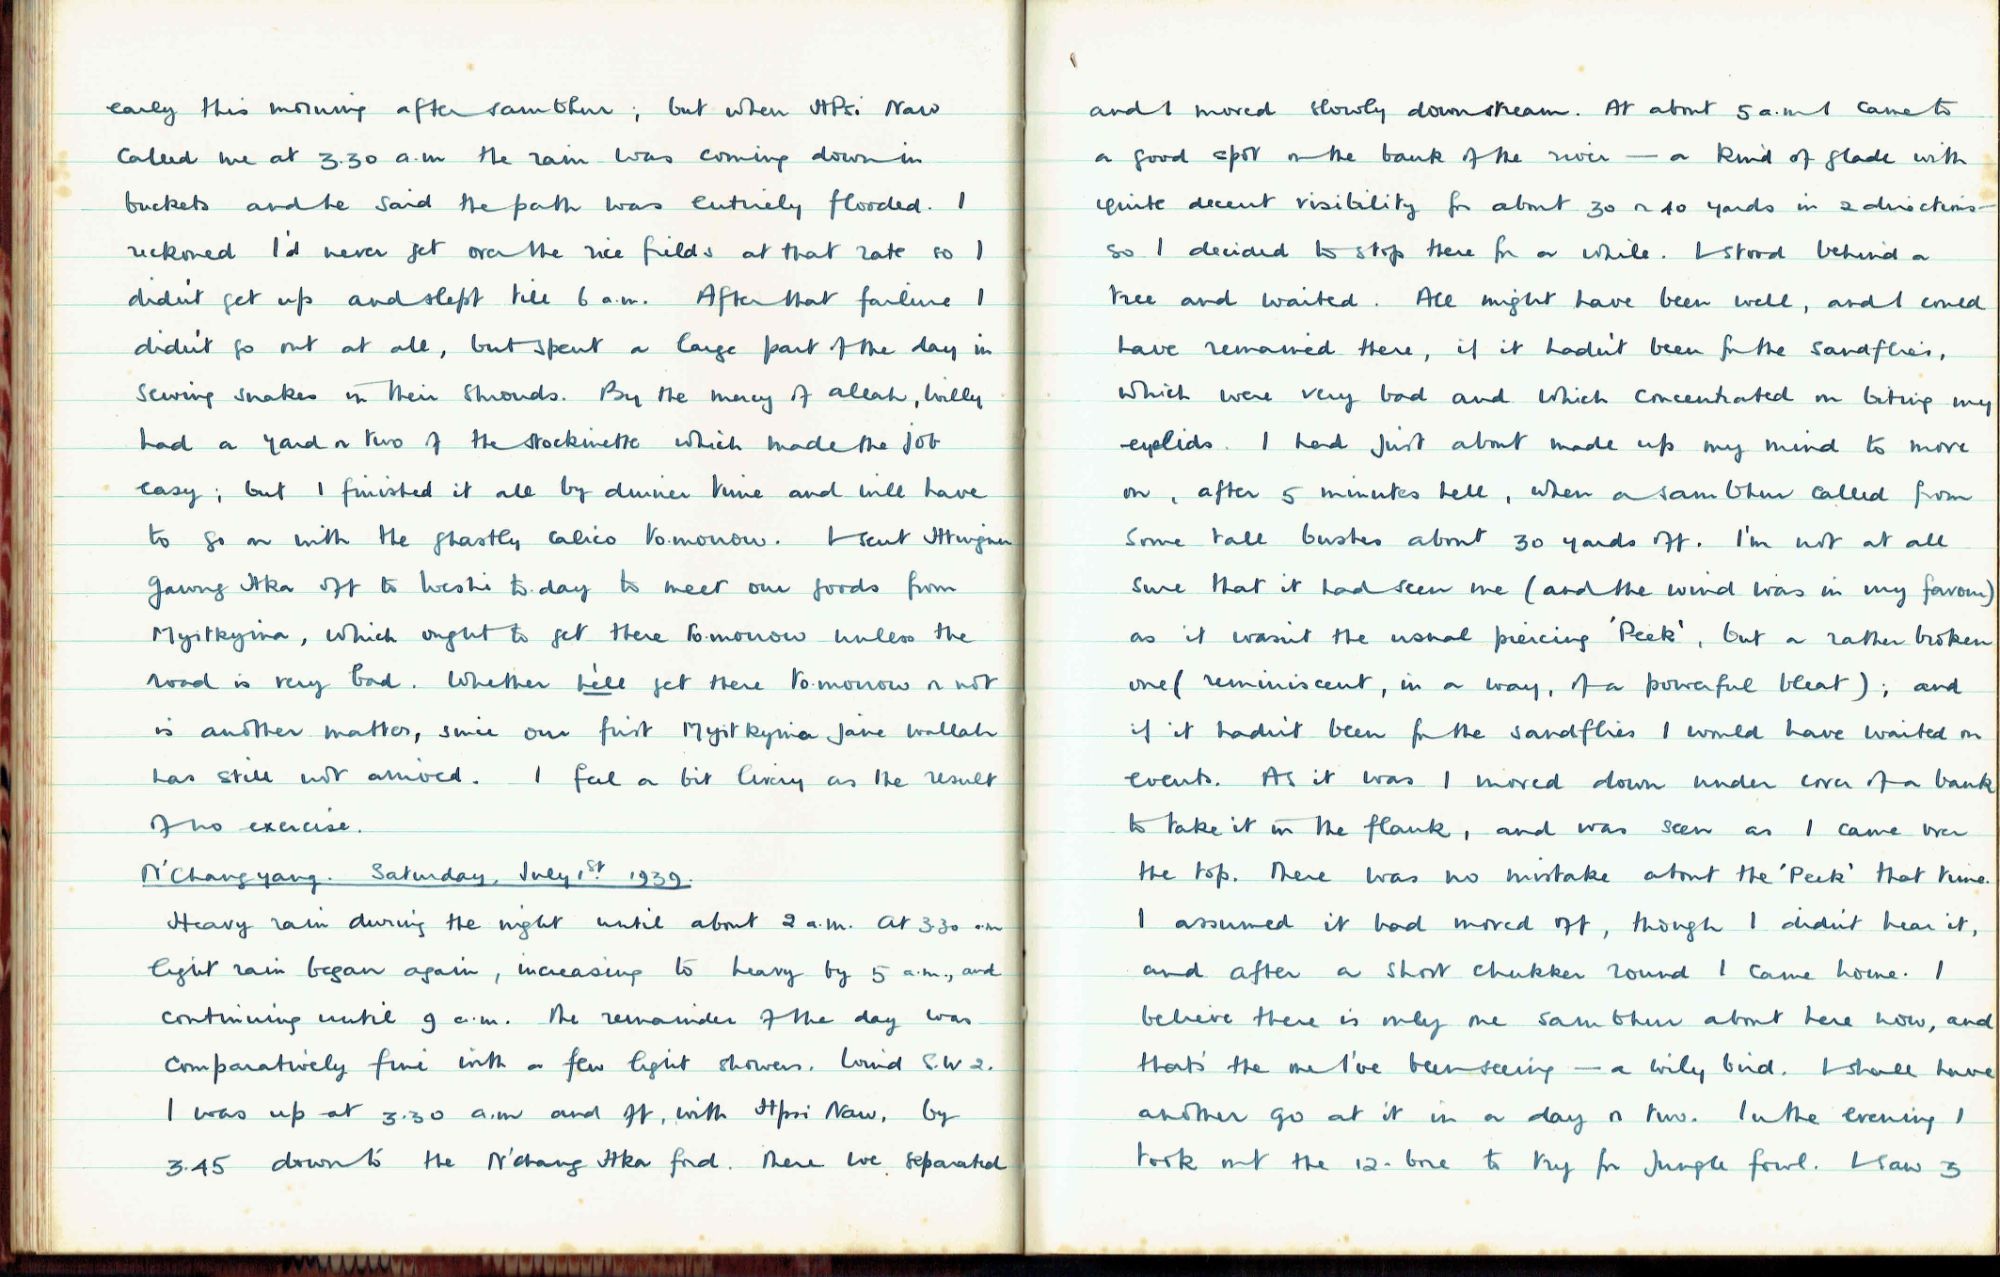 early this morning after sambhur; but when HPsi Naw
called me at 3.30 a.m the rain was coming down in
buckets and he said the path was entirely flooded. I
reckoned I'd never get over the rice fields at that rate so I
didn't get up and slept till 6 a.m. After that failure I
didn't go out at all, but spent a large part of the day in
sewing snakes in their shrouds. By the mercy of allah, Willy
had a yard or two of the stockinette which made the job
easy; but I finished it all by dinner time and will have
to go on with the ghastly calico to-morrow. I sent
Gawng Hka off to Weshi to-day to meet our goods from
Myitkyina, which ought to get there to-morrow unless the
road is very bad. Whether he'll get there to-morrow or not
is another matter, since our first Myitkyina wallah
has still not arrived. I feel a bit livery as the result
of no exercise.
N'Changyang. Saturday, July 1st 1939.
Heavy rain during the night until about 2 a.m. At 3.30 a.m
light rain began again, increasing to heavy by 5 a.m., and
continuing until 9 a.m. The remainder of the day was
comparatively fine with a few light showers. Wind S.W 2.
I was up at 3.30 a.m and off, with Hpsi Naw, by
3.45 down to the N'Chang Hka ford. There we separated
and I moved slowly downstream. At about 5 a.m I came to
a good spot on the bank of the river — a kind of glade with
quite decent visibility for about 30 or 40 yards in 2 directions —
so I decided to stop there for a while. I stood behind a
tree and waited. All might have been well, and I could
have remained there, if it hadn't been for the sandflies,
which were very bad and which concentrated on biting my
eyelids. I had just about made up my mind to move
on, after 5 minutes hell, when a sambhur called from
some tall bushes about 30 yards off. I'm not at all
sure that it had seen me (and the wind was in my favour)
as it wasn't the usual piercing 'Peek', but a rather broken
one (reminiscent, in a way, of a powerful bleat); and
if it hadn't been for the sandflies I would have waited on
events. As it was I moved down under cover of a bank
to take it in the flank, and was seen as I came over
the top. There was no mistake about the 'Peek' that time.
I assumed it had moved off, though I didn't hear it,
and after a short chukker round I came home. I
believe there is only one sambhur about here now, and
that's the one I've been seeing — a wily bird. I shall have
another go at it in a day or two. In the evening I
took out the 12-bore to try for jungle fowl. I saw 3